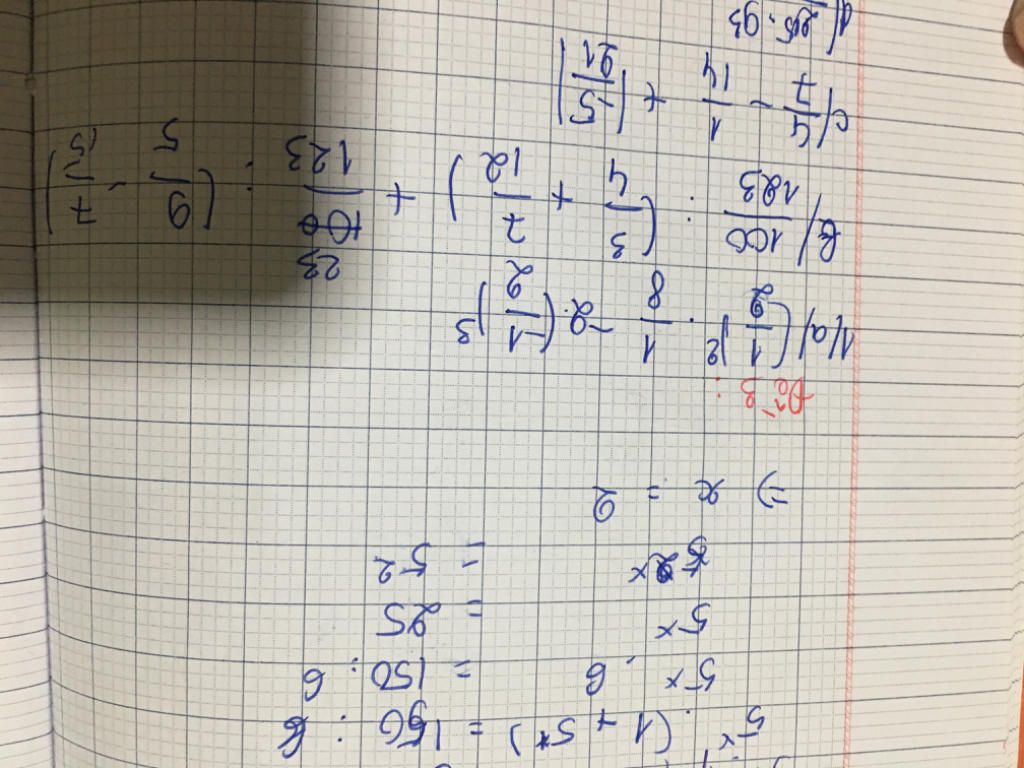 5ˣ . (1 + 5ˣ) = 150 : 6
5ˣ . 6 = 150 : 6
5ˣ = 25
5ˣ = 5²
=> x = 2
Đề 3 :
1/a/ (1/2)² . 1/8 - 2. (-1/2)³
b/ 100/123 : (3/4 + 7/12) + 23/123 : (9/5 - 7/15)
c/ 4/7 - 1/14 + |-5/21|